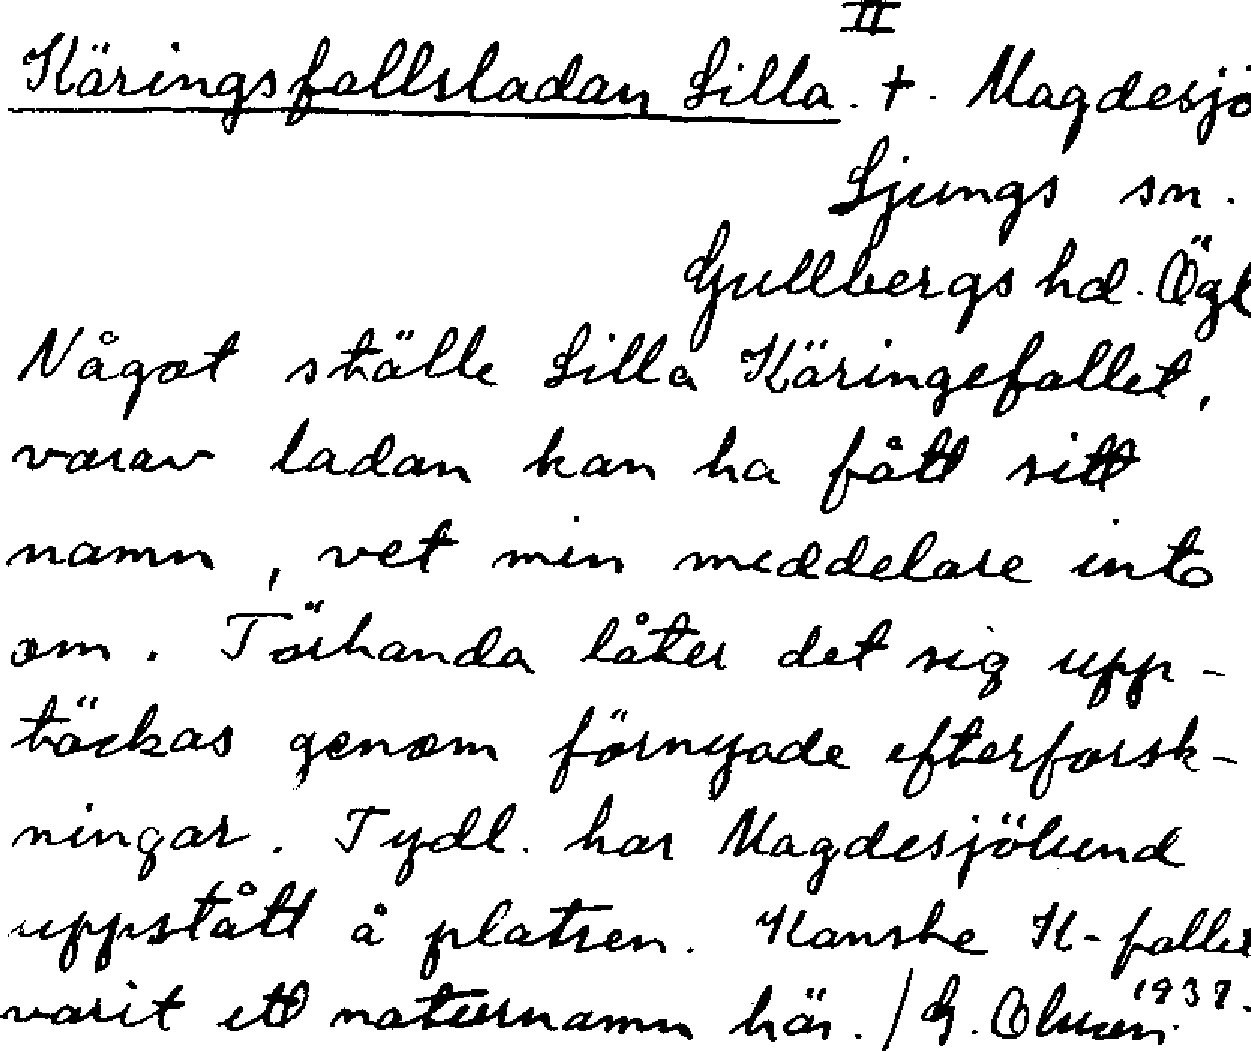 II
Käringsfallsladan, Lilla. †. Magdesjö
Ljungs sn.
Gullbergs hd. Ögl
Något ställe Lilla Käringefallet,
varav ladan kan ha fått sitt
namn, vet min meddelare inte
om. Törhanda låter det sig upp-
täckas genom förnyade efterforsk-
ningar. Tydl. har Magdesjölund
uppstått å platsen. Kanske K-fallet
varit ett naturnamn här. / G. Olsson 1937.